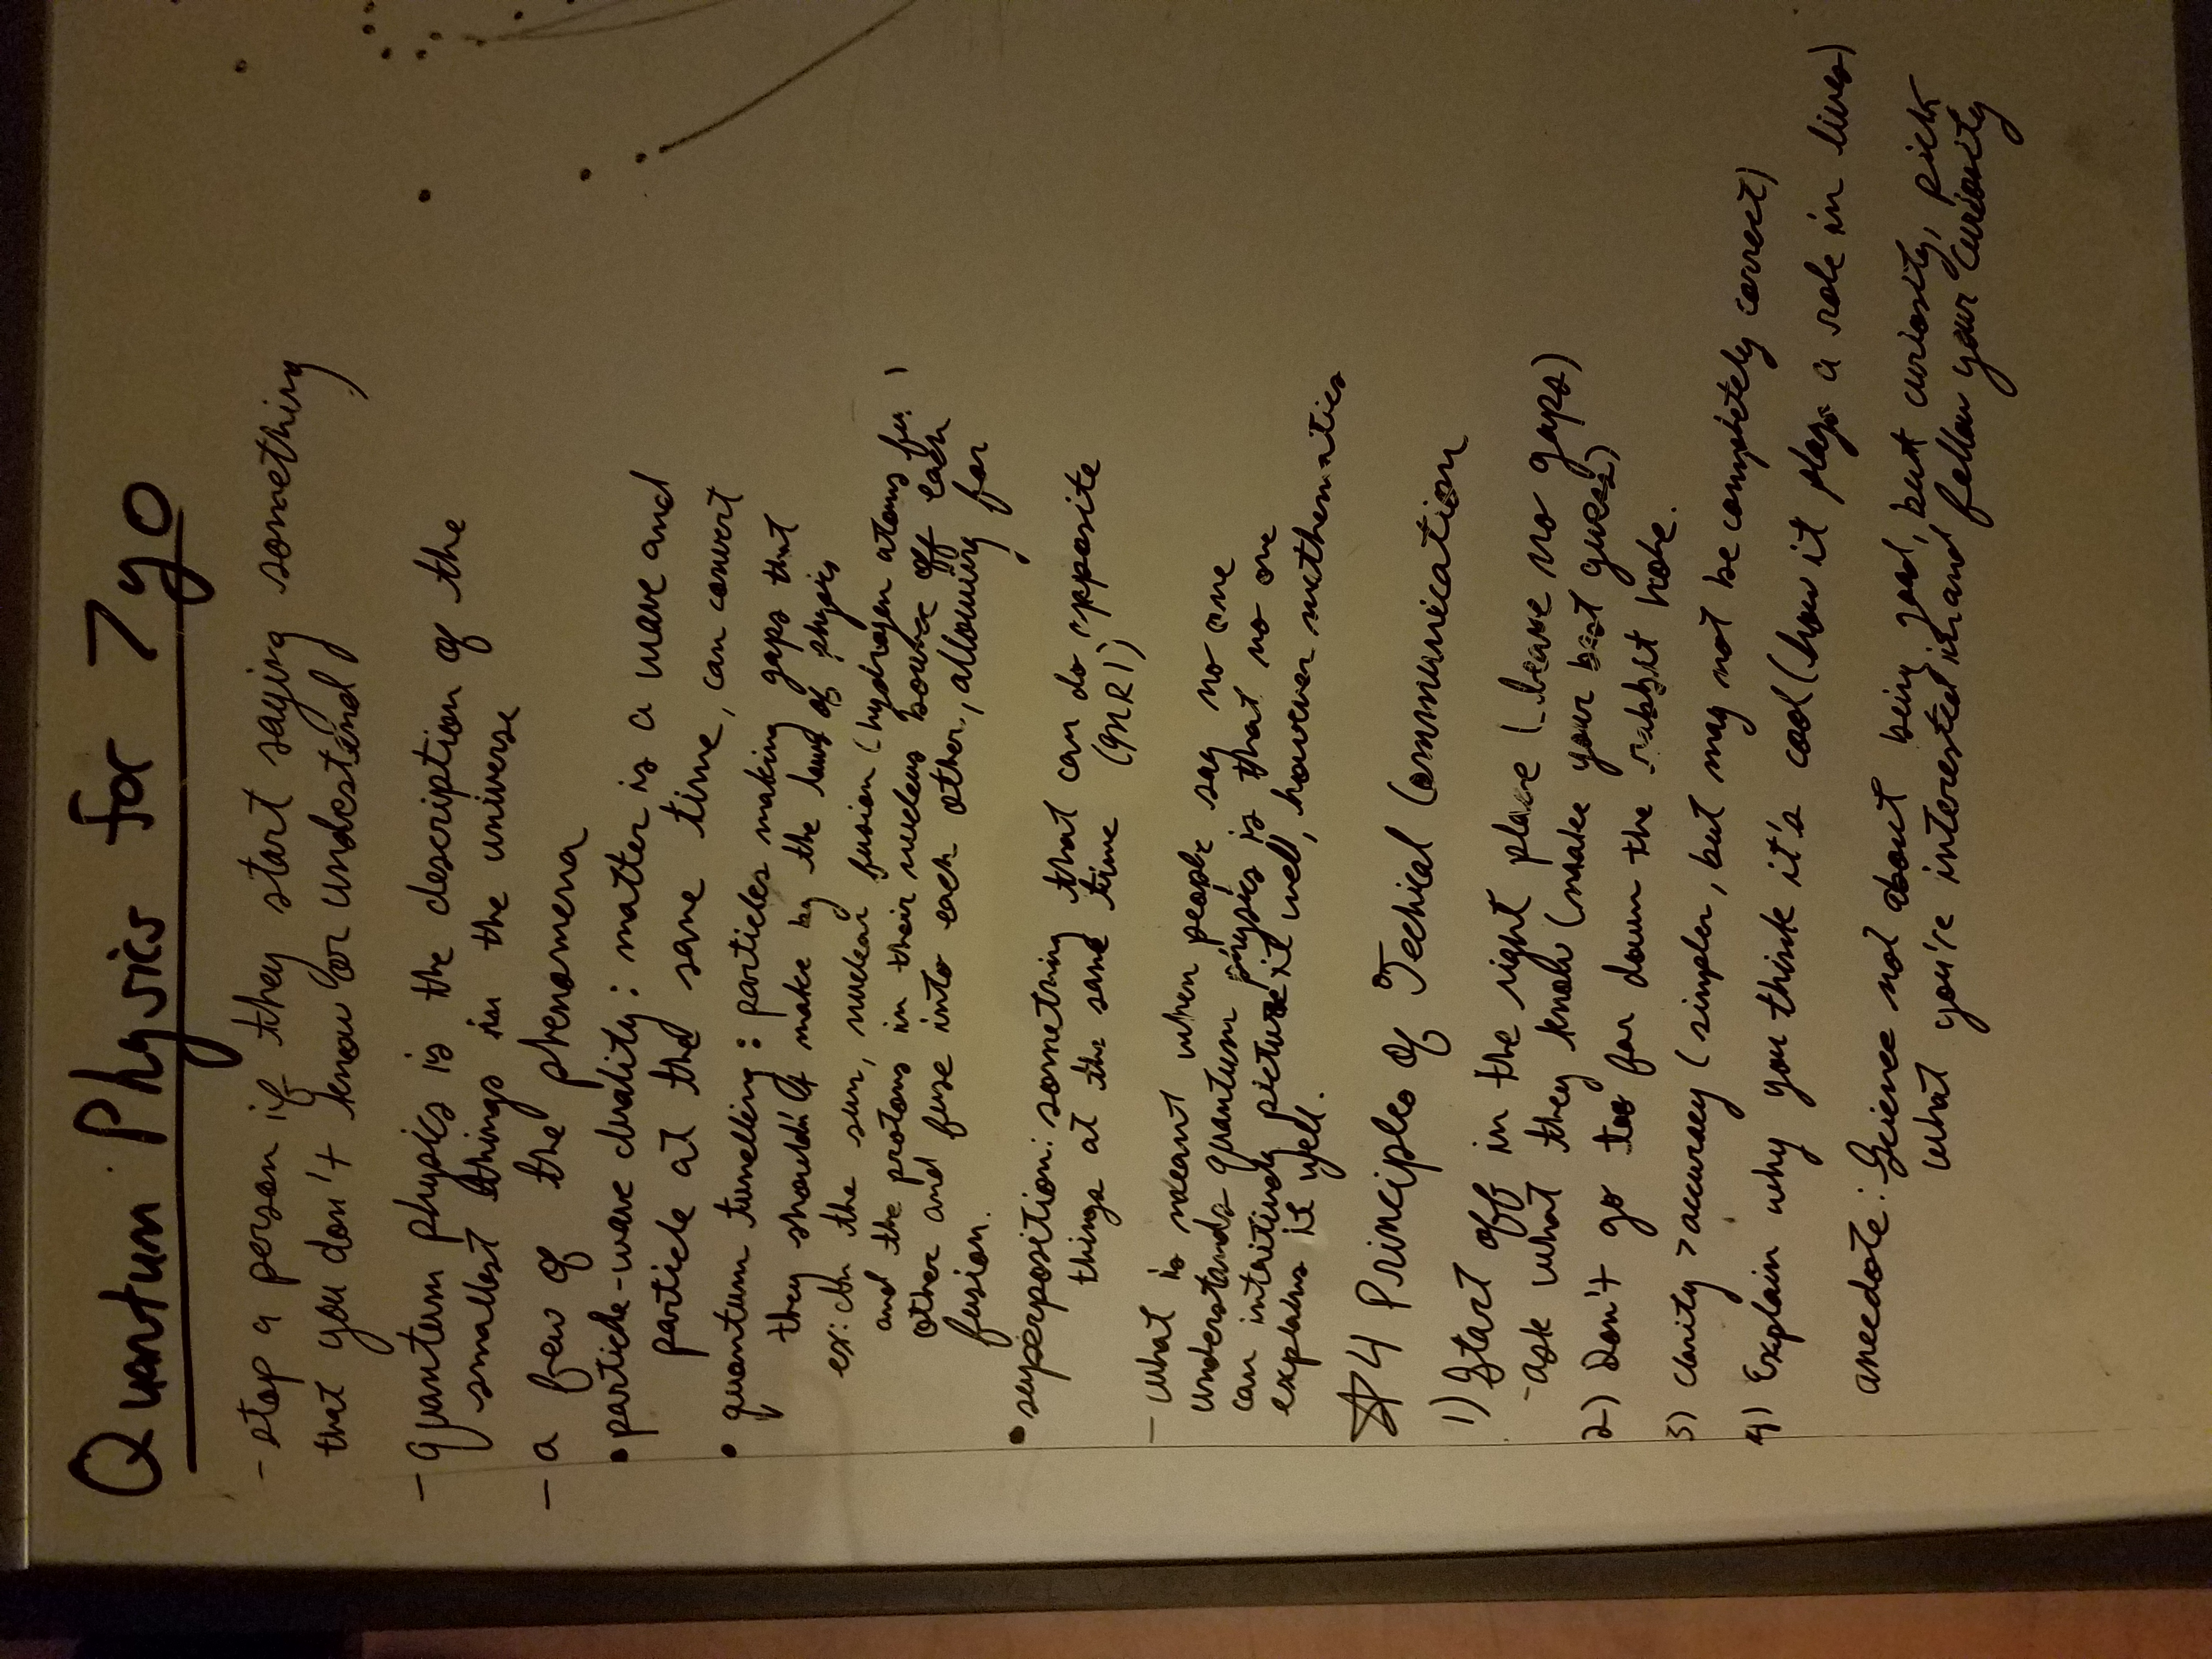 Quantum Physics for 7yo
- stop a person if they start saying something
that you don't know or undestend
- quantum physics is the description of the
smallest things in the universe
- a few of the phenomena
• particle-wave duality: matter is a wave and
particle at the same time, can convert
• quantum tunelling: particles making gaps that
they shouldn't make by the laws of physics
ex: In the sun, nuclear fusion (hydrogen atoms )
and the protons in their nucleus bounce off each
other and fuse into each other, allowing for
fusion.
• superposition: something that can do opposite
things at the same time (MRI)
- what is meant when people say no one
understands quantum physics is that no one
can intuitively picture it well, however mathematics
explains it well.
☆ 4 Principles of Techical Communication
1) Start off in the right place (leave no gaps)
- ask what they know (make your best guess)
2) Don't go too far down the rabbit hole.
3) clarity > accuracy (simpler, but may not be completely correct)
4) Explain why you think it's cool (how it plays a role in lives)
anecdote: Science not about being good, but curiosity, pick
what you're interested in and follow your curiosity